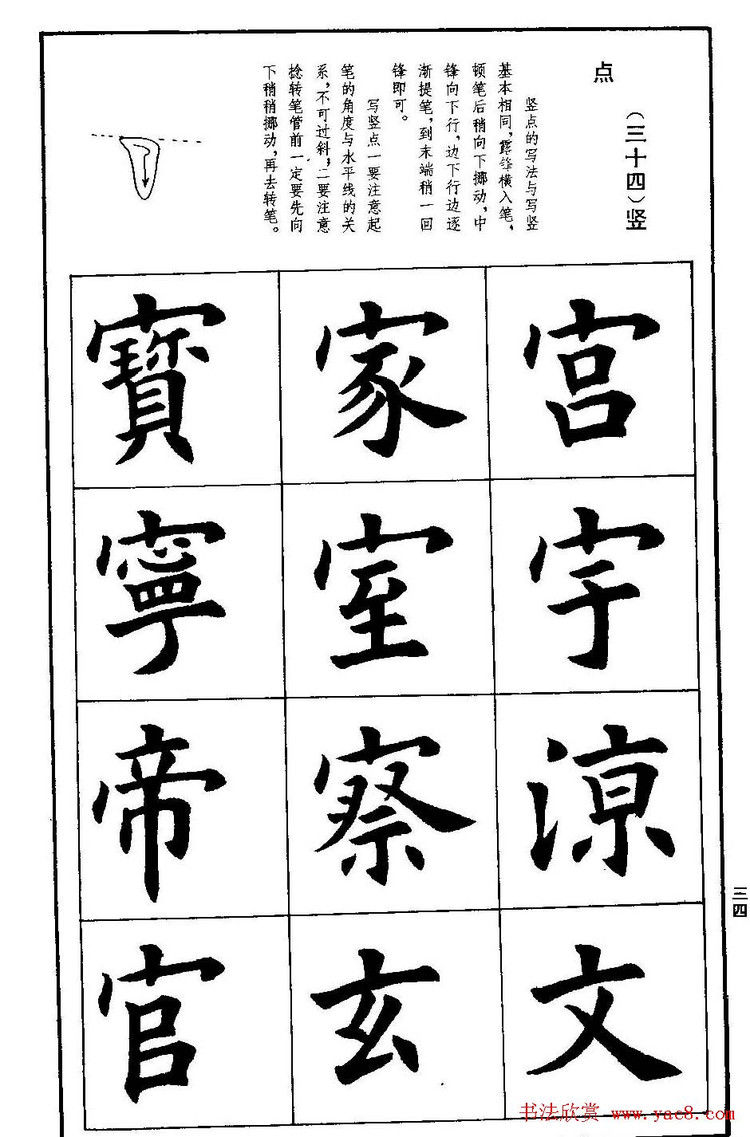 （三十四）竖
点
竖点的写法与写竖
基本相同，露锋横入笔，
顿笔后稍向下挪动，中
锋向下行，边下行边逐
渐提笔，到末端稍一回
锋即可。
写竖点一要注意起
笔的角度与水平线的关
系，不可过斜；二要注意
捻转笔管前一定要先向
下稍稍挪动，再去转笔。
宫宇凉文
家室察玄
寶寧帝官
三四
书法欣赏 www.yac8.com